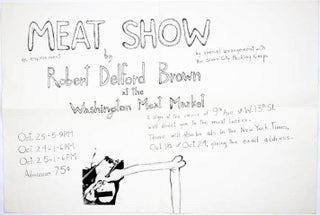 MEAT SHOW
an environment
by
by special arrangement with
Robert Delford Brown
at the
Washington Meat Market
a sign at the corner of 9th Ave & W. 13th St.
will direct you to the meat locker.
There will also be ads in the New York Times,
Oct. 18 & Oct. 24, giving the exact address.
Oct. 23-5-9PM
Oct. 24-1-6PM
Oct. 25-1-6PM
Admission 75¢